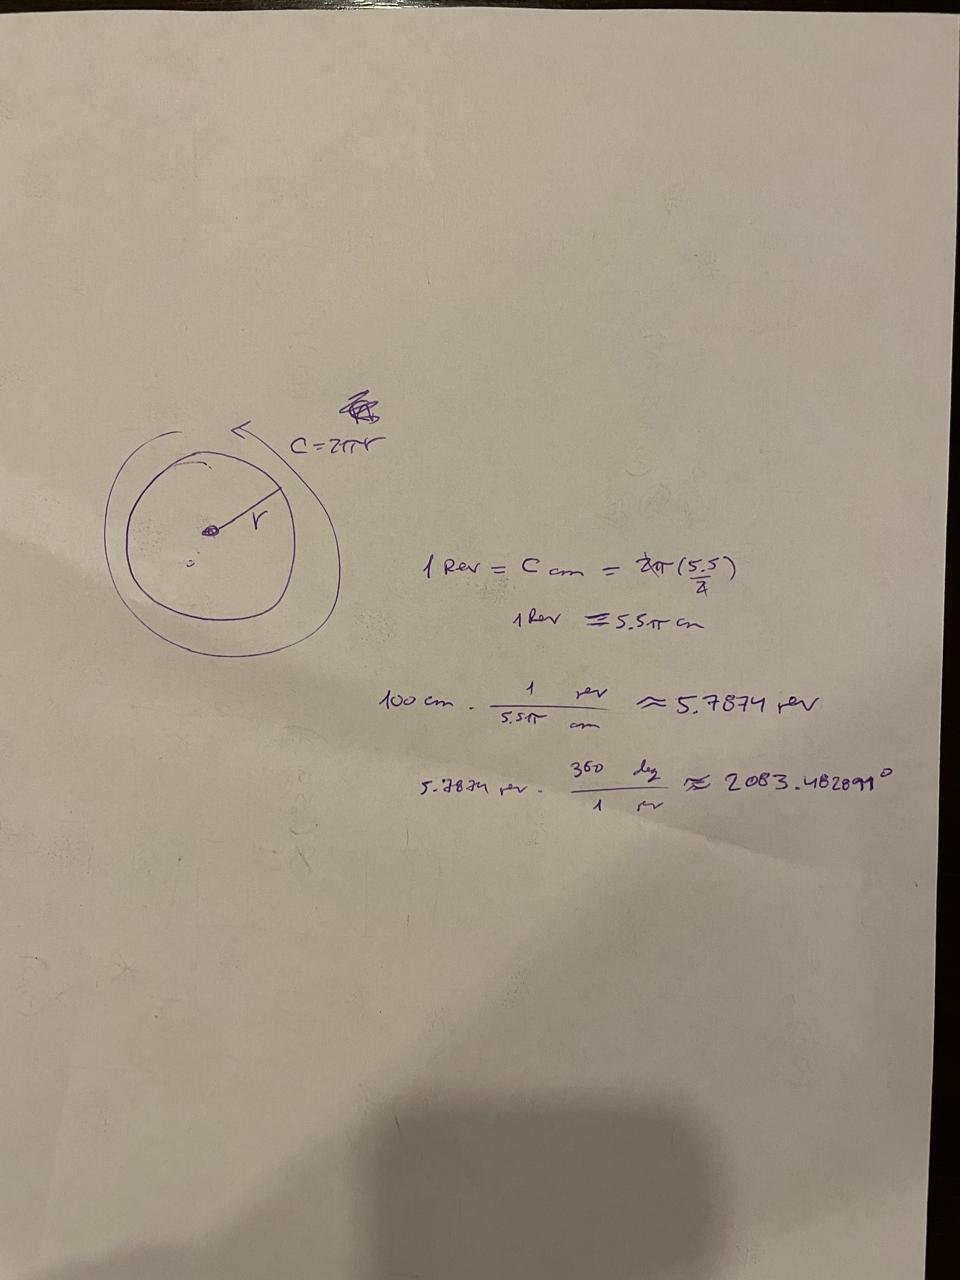 C = 2πr
r
1 Rev = C cm = 2π (5.5/2)
1 Rev = 5.5π cm
100 cm · 1 rev / 5.5π cm ≈ 5.7874 rev
5.7874 rev · 360 deg / 1 rev ≈ 2083.482899°